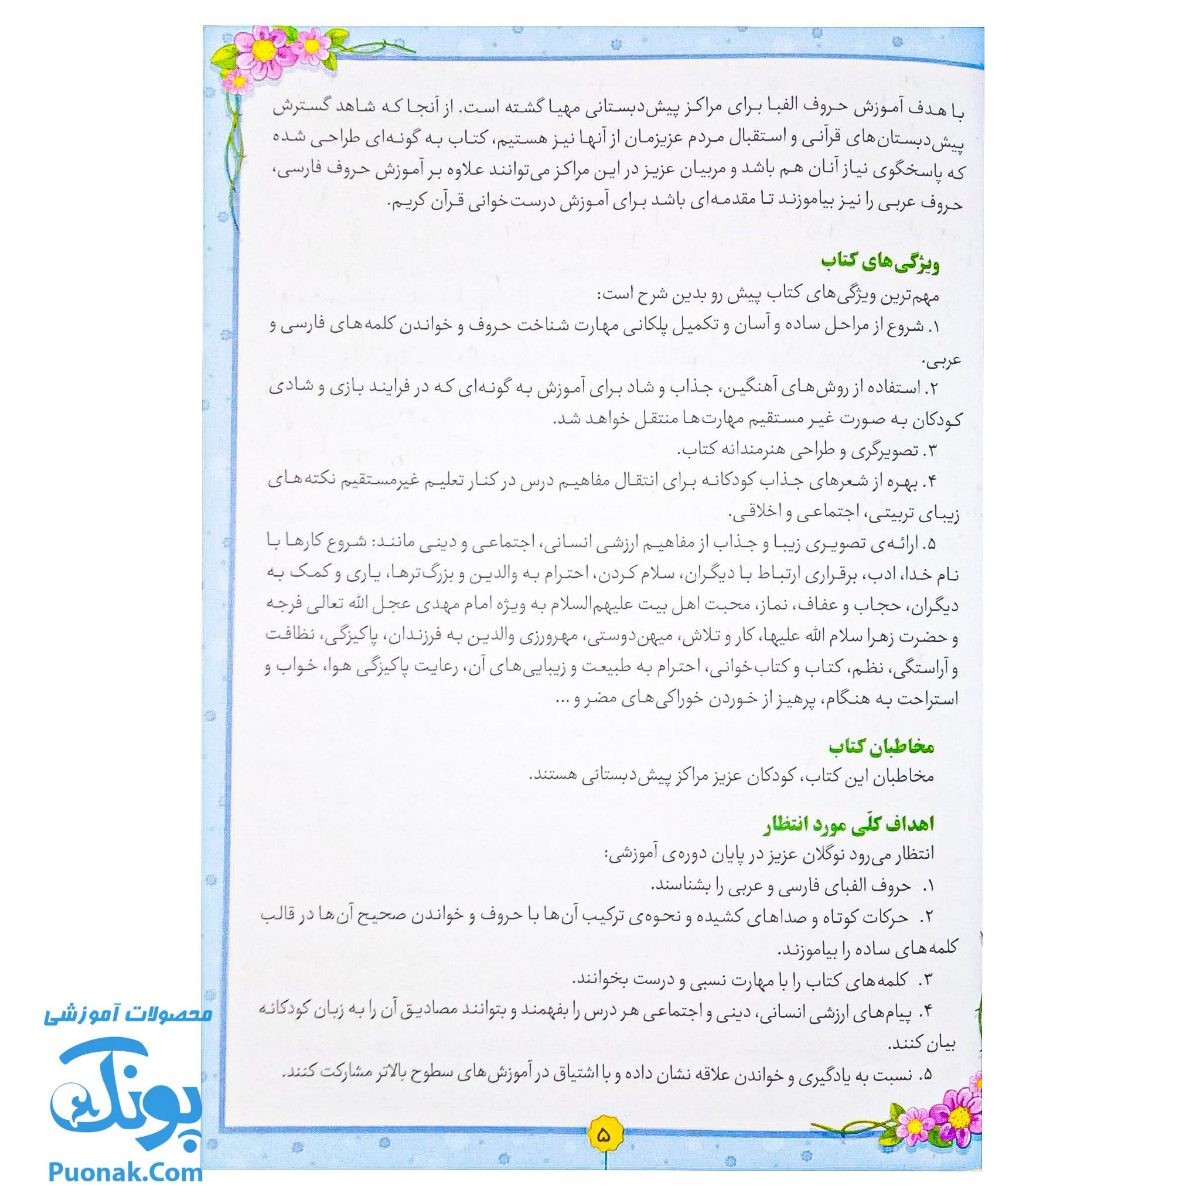 با هدف آموزش حروف الفبا برای مراکز پیش‌دبستانی مهیا گشته است. از آنجا که شاهد گسترش
پیش‌دبستان‌های قرآنی و استقبال مردم عزیزمان از آنها نیز هستیم، کتاب به گونه‌ای طراحی شده
که پاسخگوی نیاز آنان هم باشد و مربیان عزیز در این مراکز می‌توانند علاوه بر آموزش حروف فارسی،
حروف عربی را نیز بیاموزند تا مقدمه‌ای باشد برای آموزش درست‌خوانی قرآن کریم.
ویژگی‌های کتاب
مهم‌ترین ویژگی‌های کتاب پیش رو بدین شرح است:
۱. شروع از مراحل ساده و آسان و تکمیل پلکانی مهارت شناخت حروف و خواندن کلمه‌های فارسی و
عربی.
۲. استفاده از روش‌های آهنگین، جذاب و شاد برای آموزش به گونه‌ای که در فرایند بازی و شادی
کودکان به صورت غیر مستقیم مهارت‌ها منتقل خواهد شد.
۳. تصویرگری و طراحی هنرمندانه کتاب.
۴. بهره از شعرهای جذاب کودکانه برای انتقال مفاهیم درس در کنار تعلیم غیرمستقیم نکته‌های
زیبای تربیتی، اجتماعی و اخلاقی.
۵. ارائه‌ی تصویری زیبا و جذاب از مفاهیم ارزشی انسانی، اجتماعی و دینی مانند: شروع کارها با
نام خدا، ادب، برقراری ارتباط با دیگران، سلام کردن، احترام به والدین و بزرگ‌ترها، یاری و کمک به
دیگران، حجاب و عفاف، نماز، محبت اهل بیت علیهم‌السلام به ویژه امام مهدی عجل الله تعالی فرجه
و حضرت زهرا سلام الله علیها، کار و تلاش، میهن‌دوستی، مهرورزی والدین به فرزندان، پاکیزگی، نظافت
و آراستگی، نظم، کتاب و کتاب‌خوانی، احترام به طبیعت و زیبایی‌های آن، رعایت پاکیزگی هوا، خواب و
استراحت به هنگام، پرهیز از خوردن خوراکی‌های مضر و ...
مخاطبان کتاب
مخاطبان این کتاب، کودکان عزیز مراکز پیش‌دبستانی هستند.
اهداف کلّی مورد انتظار
انتظار می‌رود نوگلان عزیز در پایان دوره‌ی آموزشی:
۱. حروف الفبای فارسی و عربی را بشناسند.
۲. حرکات کوتاه و صداهای کشیده و نحوه‌ی ترکیب آن‌ها با حروف و خواندن صحیح آن‌ها در قالب
کلمه‌های ساده را بیاموزند.
۳. کلمه‌های کتاب را با مهارت نسبی و درست بخوانند.
۴. پیام‌های ارزشی انسانی، دینی و اجتماعی هر درس را بفهمند و بتوانند مصادیق آن را به زبان کودکانه
بیان کنند.
۵. نسبت به یادگیری و خواندن علاقه نشان داده و با اشتیاق در آموزش‌های سطوح بالاتر مشارکت کنند.
۵
محصولات آموزشی
پونک
Puonak.Com